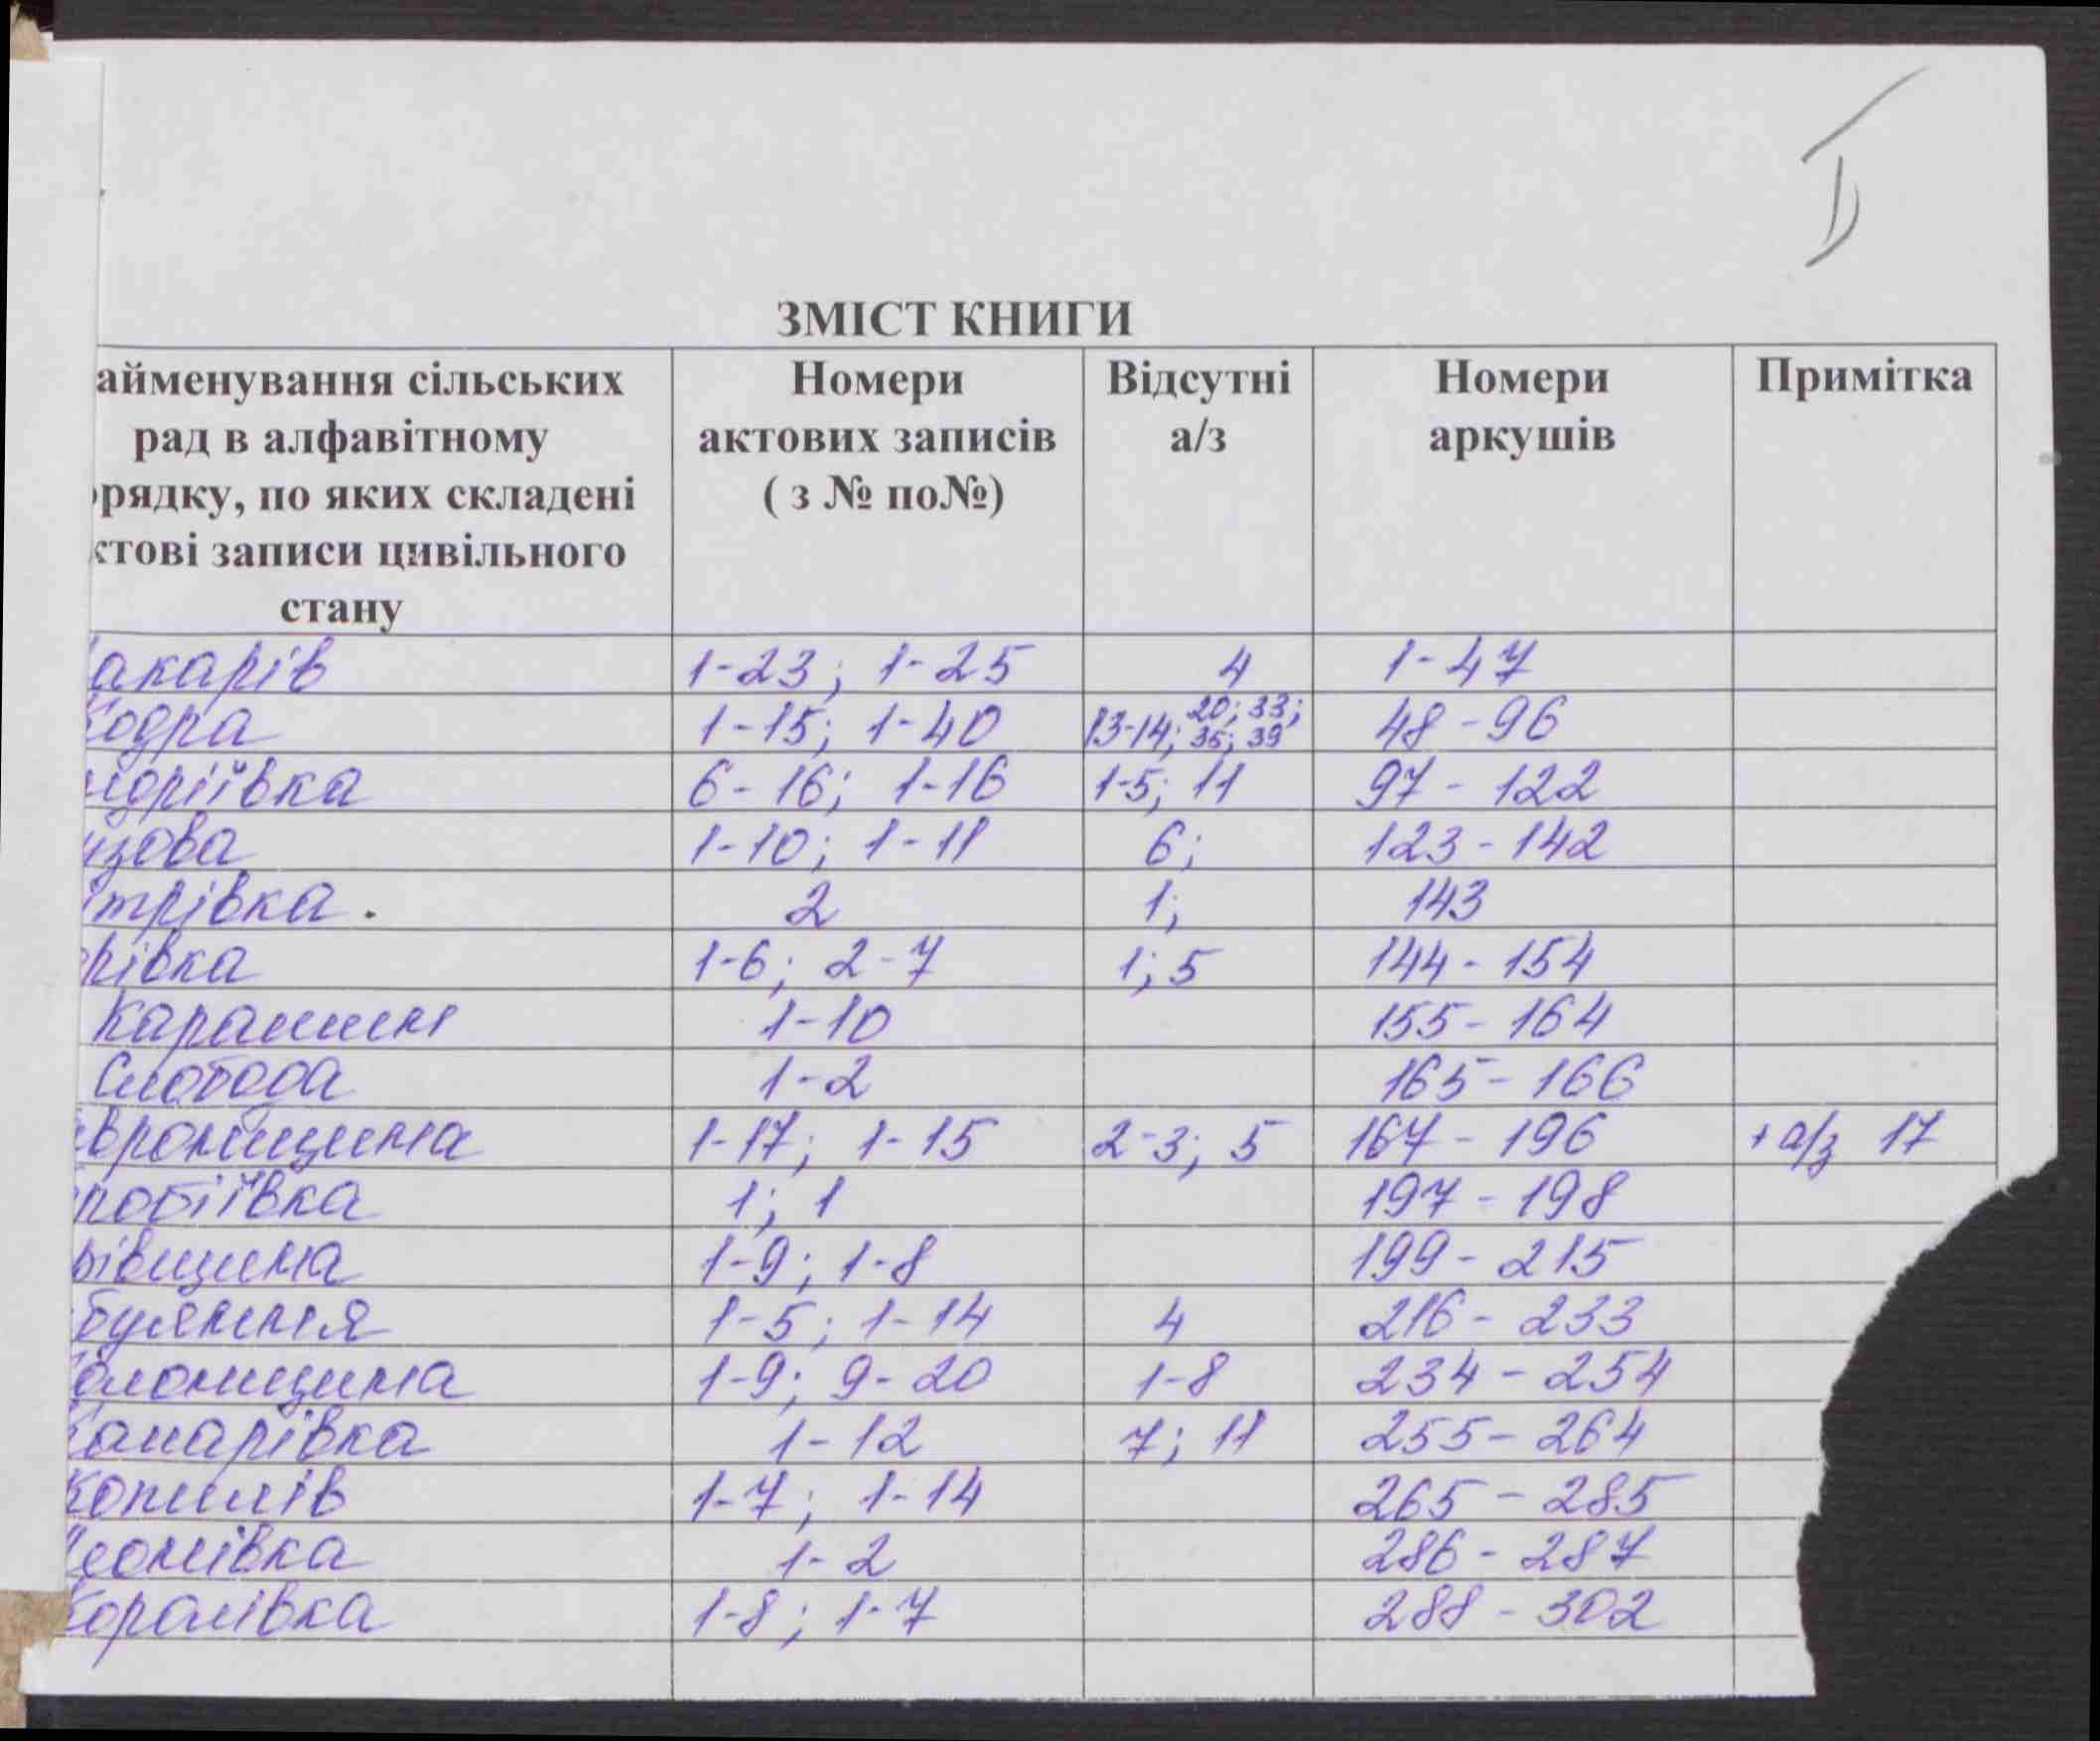 ЗМІСТ КНИГИ
айменування сільських рад в алфавітному орядку, по яких складені ктові записи цивільного стану | Номери актових записів ( з № по№) | Відсутні а/з | Номери аркушів | Примітка
акарів 1-23; 1-25 4 1-47
Кодра 1-15; 1-40 13-14; 20; 33; 35; 39 48-96
ндріївка 6-16; 1-16 1-5; 11 97-122
узова 1-10; 1-11 6; 123-142
ітрівка. 2 1; 143
рівка 1-6; 2-7 1; 5 144-154
Карашин 1-10 155-164
Слобода 1-2 165-166
авронщина 1-17; 1-15 2-3; 5 167-196 + а/з 17
робіївка 1; 1 197-198
рівщина 1-9; 1-8 199-215
буяння 1-5; 1-14 4 216-233
Колонщина 1-9; 9-20 1-8 234-254
Комарівка 1-12 7; 11 255-264
Копилів 1-7; 1-14 265-285
еонівка 1-2 286-287
Королівка 1-8; 1-7 288-302